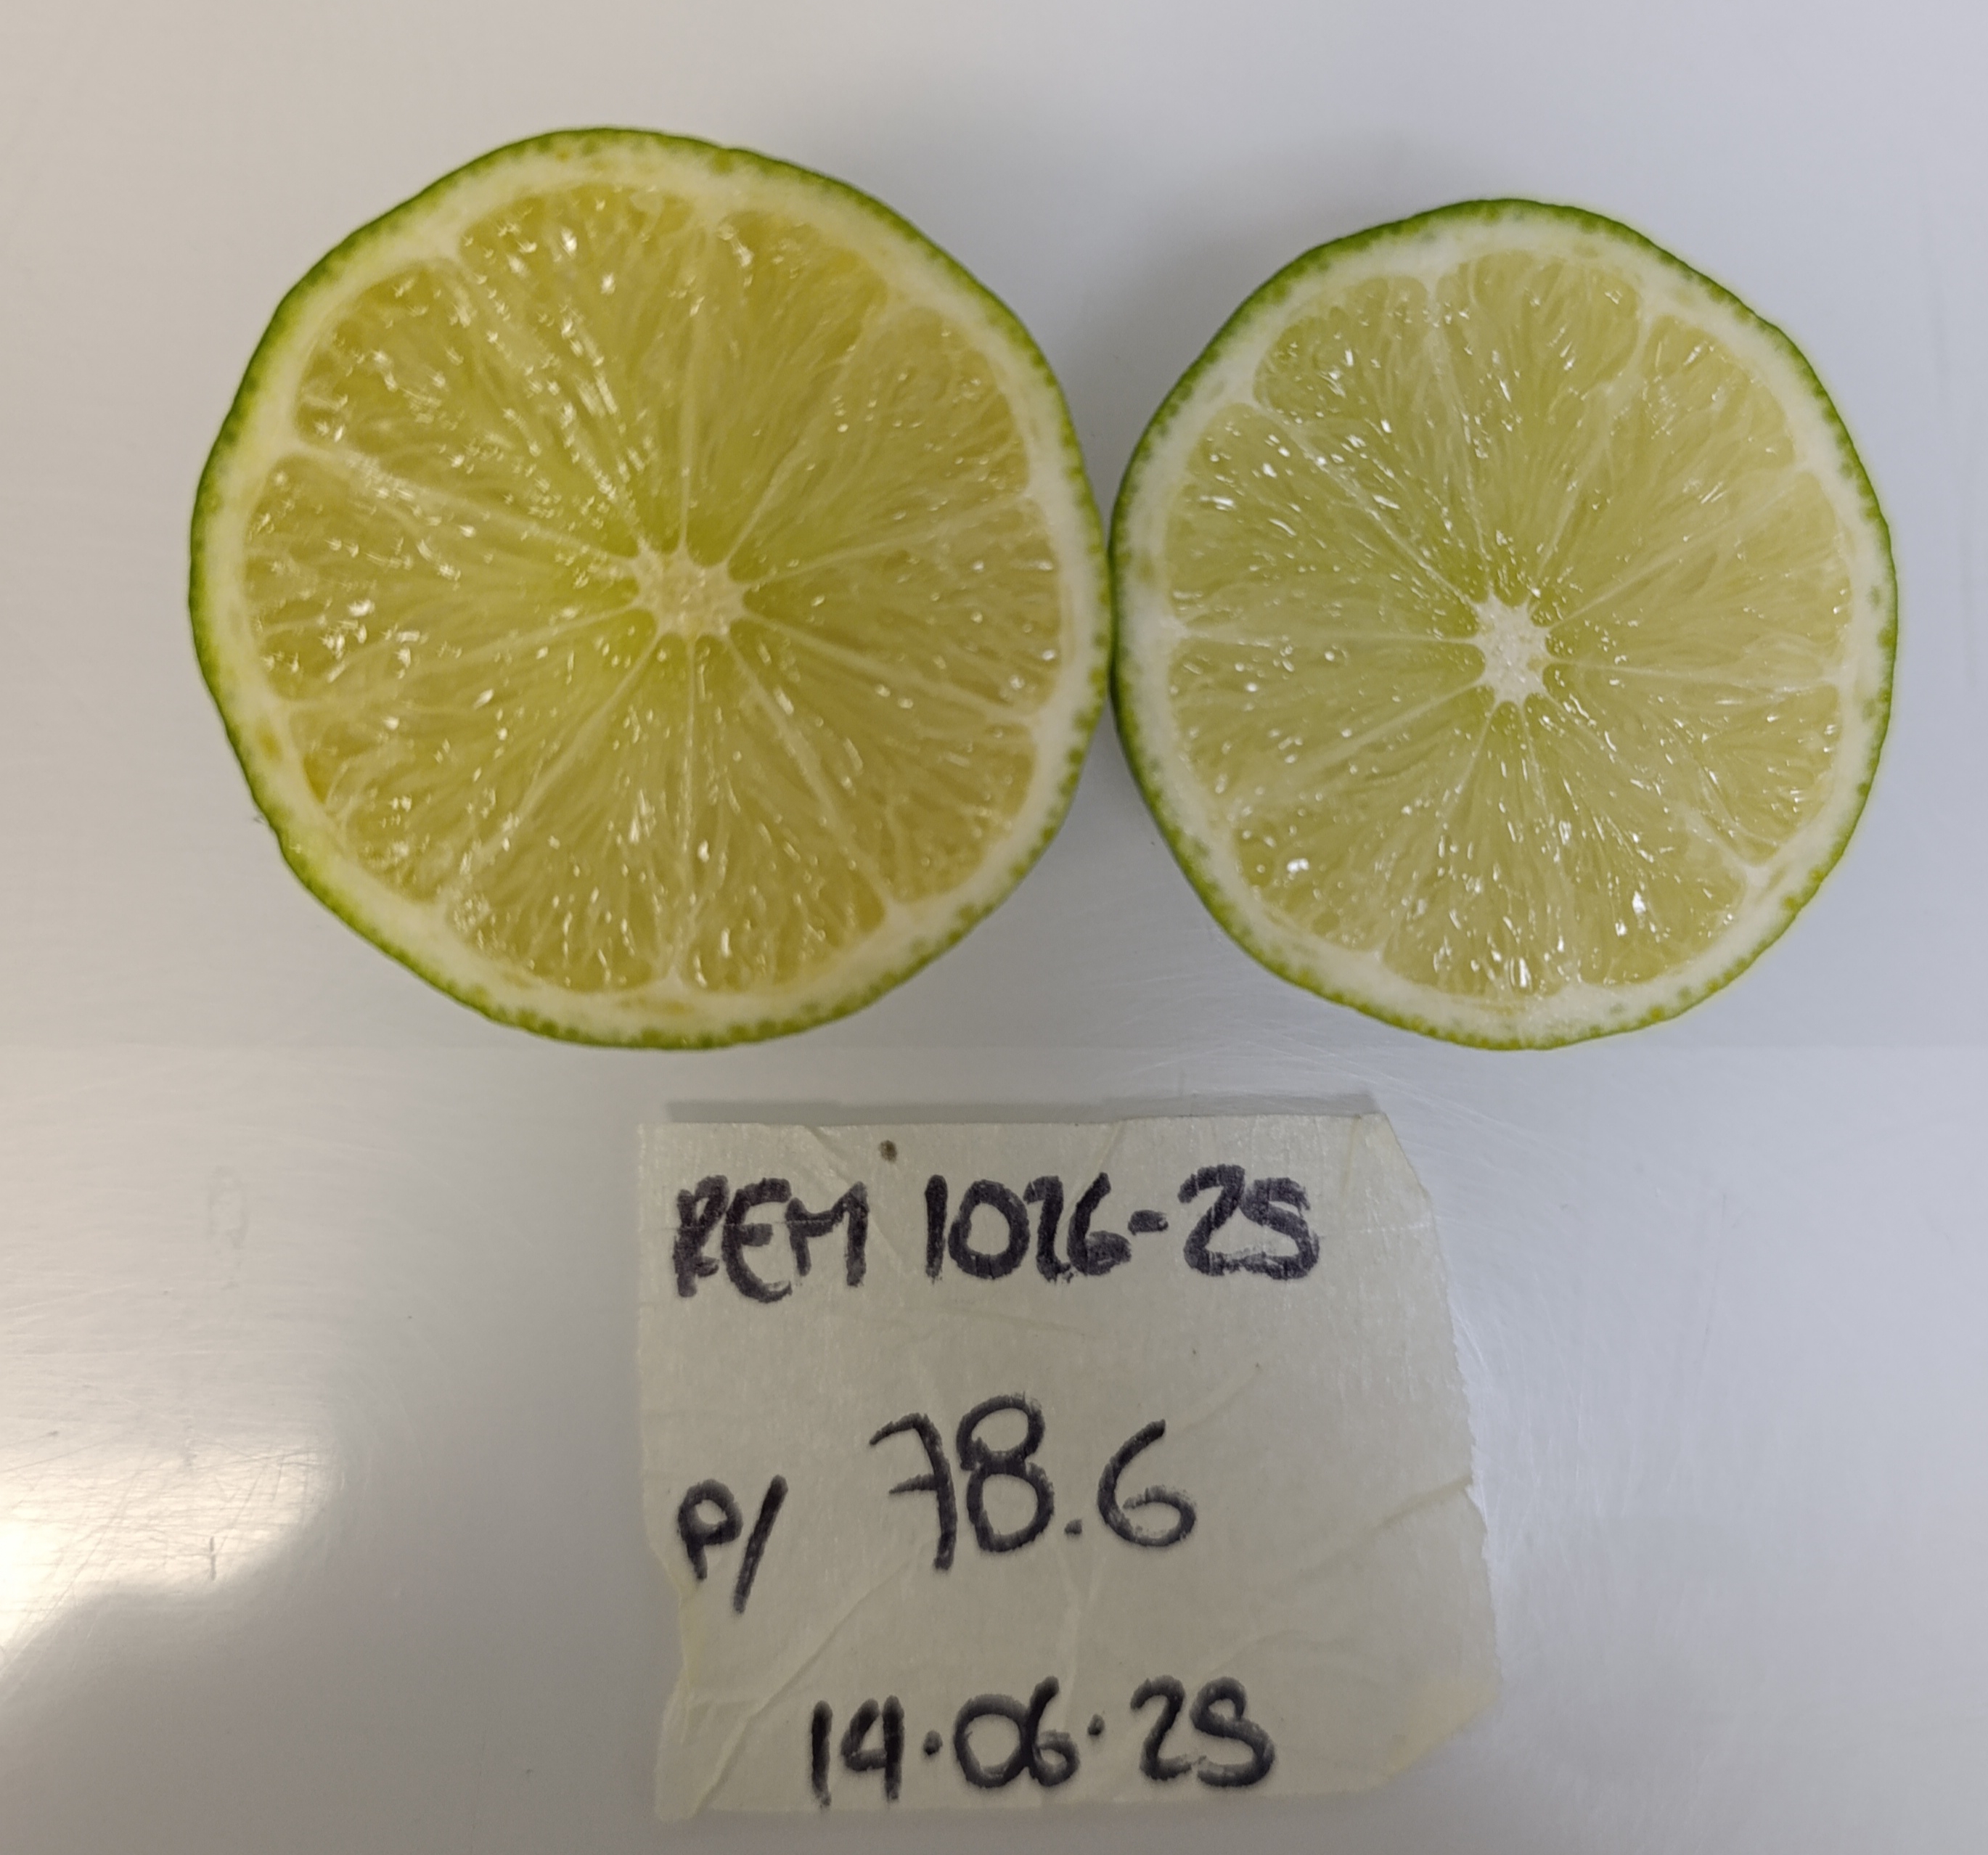 REM 1026-25
P/ 78.6
14.06.25